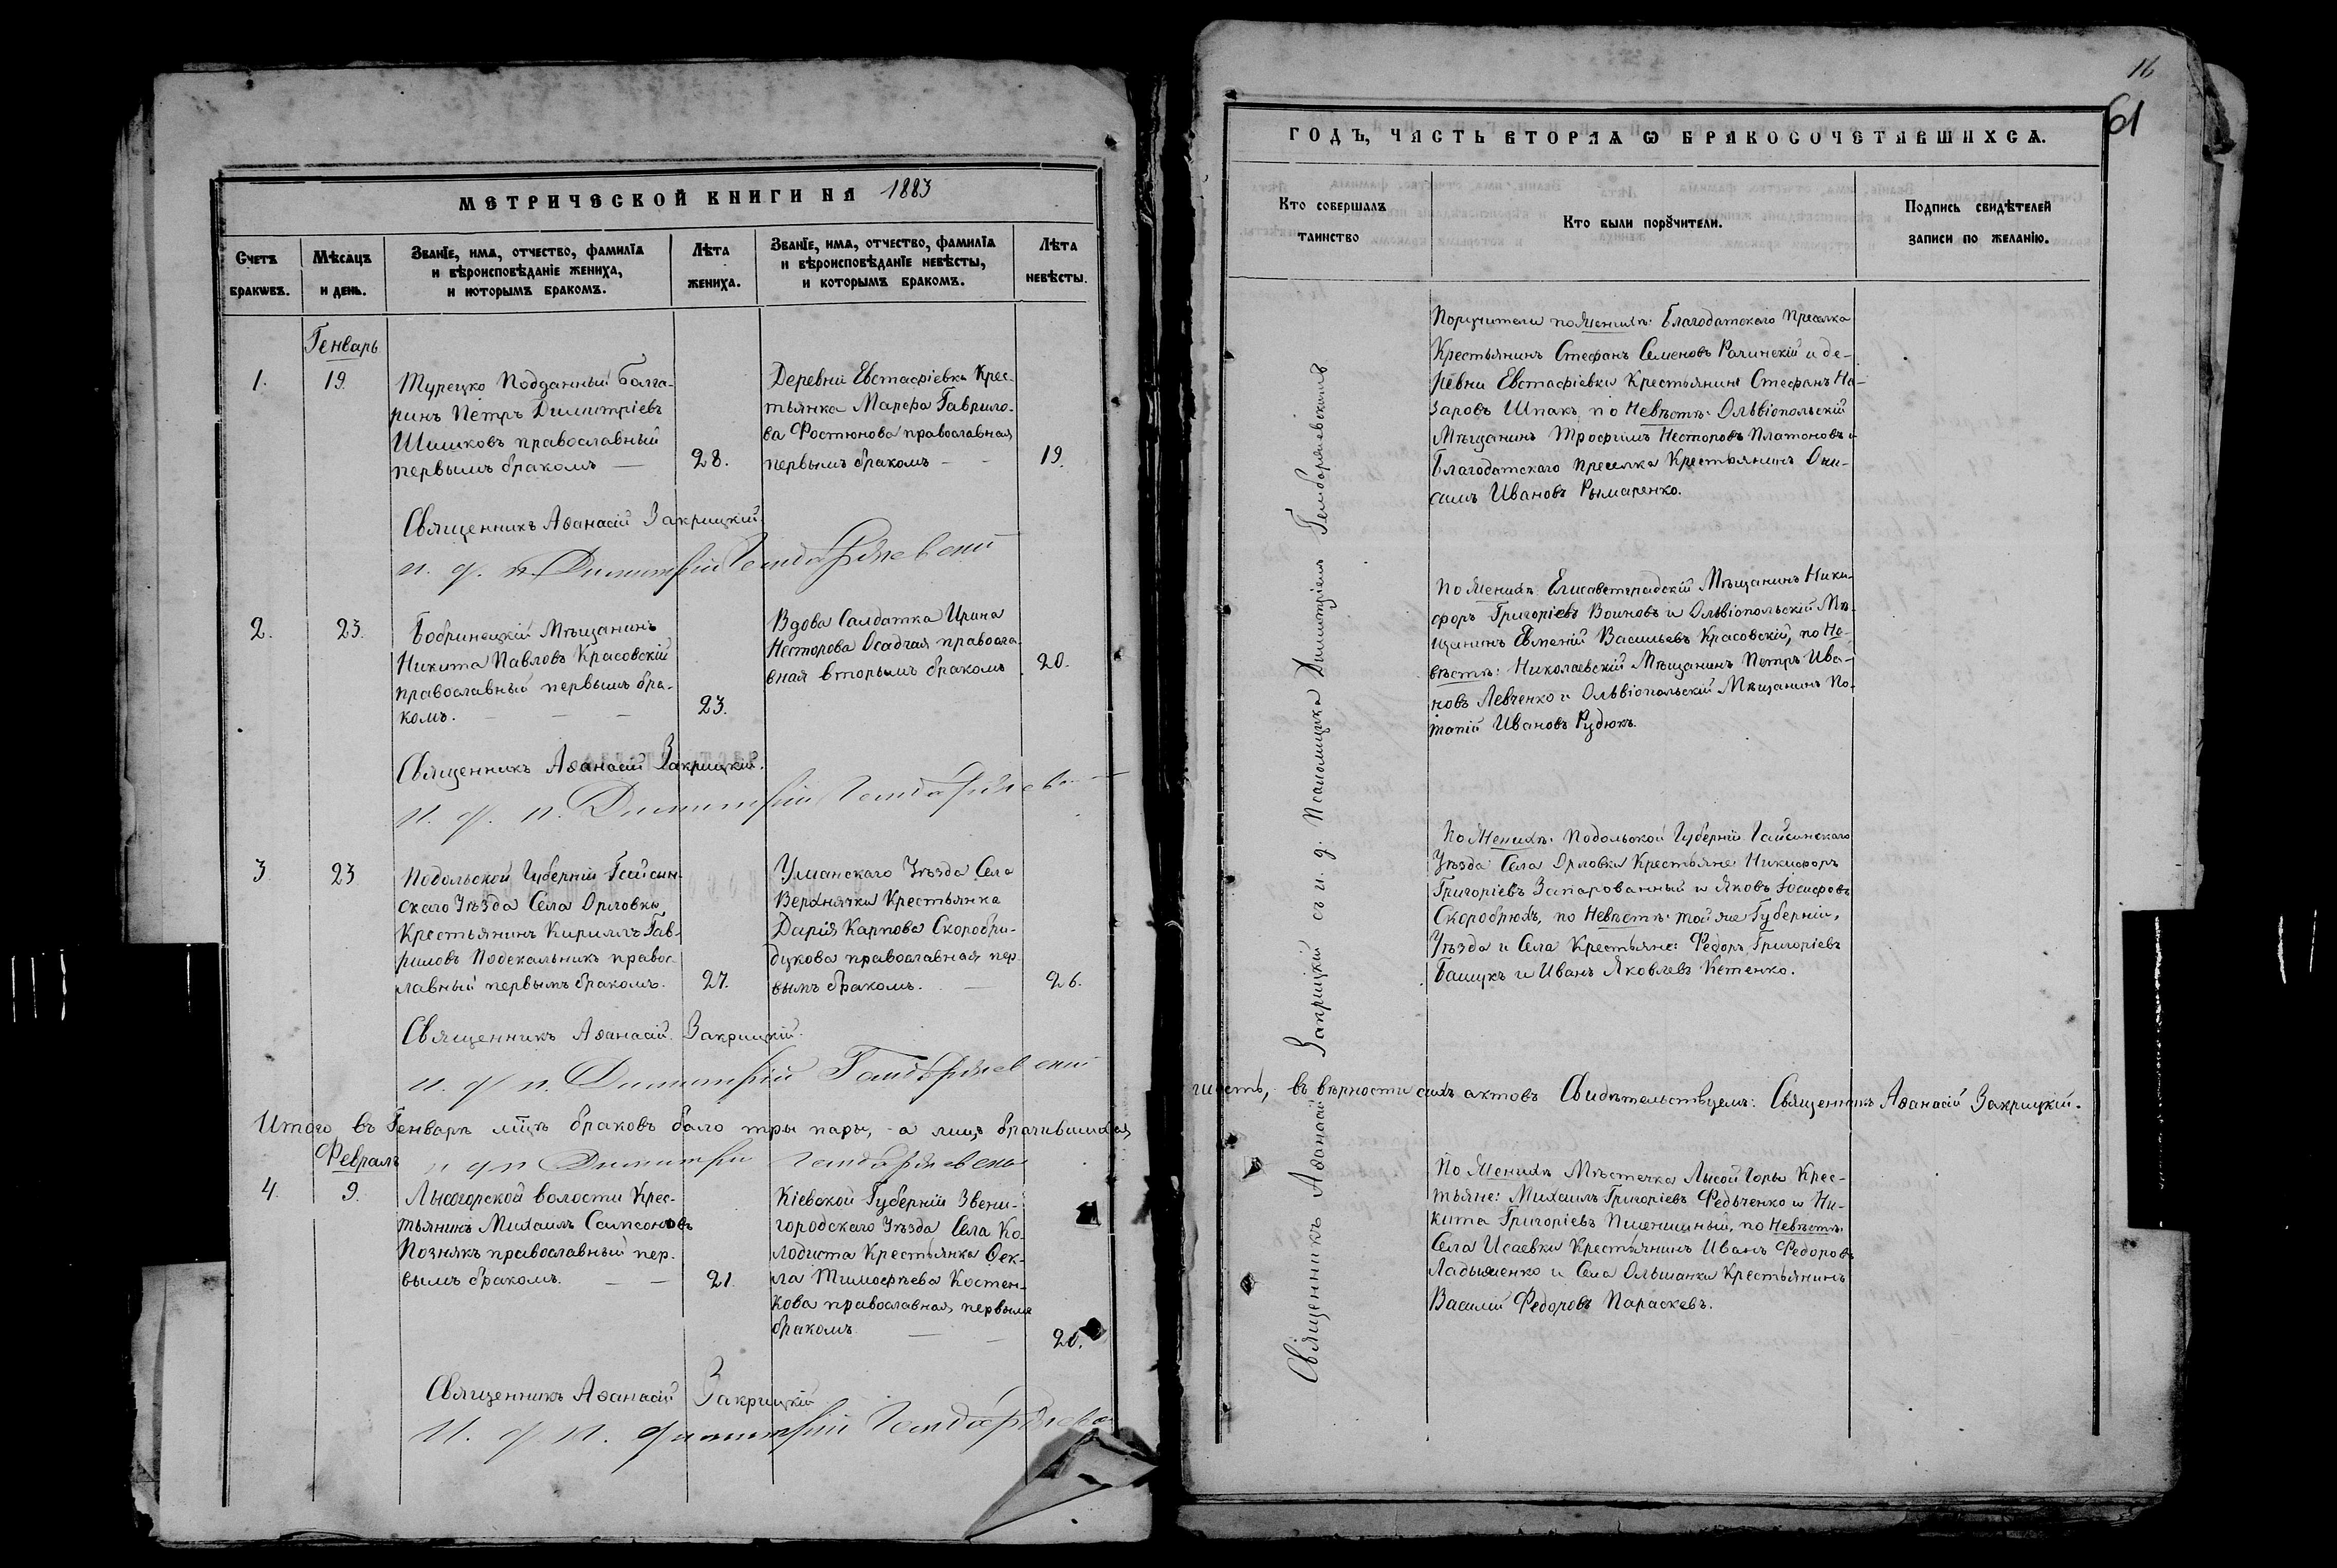 МЕТРИЧЕСКОЙ КНИГИ НА 1883
Счетъ браковъ.
Мѣсяцъ и день.
Званіе, имя, отчество, фамилія
и вѣроисповѣданіе жениха,
и которымъ бракомъ.
Лѣта жениха.
Званіе, имя, отчество, фамилія
и вѣроисповѣданіе невѣсты,
и которымъ бракомъ.
Лѣта невѣсты.
Генварь
1.
19.
Турецко подданный Болга-
ринъ Петръ Димитріевъ
Шишковъ православный
первымъ бракомъ —
28.
Деревни Евстафіевки Крес-
тьянка Марѳа Гаврило-
ва Фостюнова православная
первымъ бракомъ —
19.
Священникъ Аѳанасій Закрицкій.
и. д. п. Димитрій Гембаржевскій
2.
23.
Бобринецкій Мѣщанинъ
Никита Павловъ Красовскій
православный первымъ бра-
комъ. — — —
23.
Вдова Солдатка Ирина
Несторова Осадчая правосла-
вная вторымъ бракомъ
20.
Священникъ Аѳанасій Закрицкій.
и. д. п. Димитрій
3
23
Подольской Губерніи Гайсин-
скаго Уѣзда Села Орловки
Крестьянинъ Кириллъ Гав-
риловъ Подекальникъ правос-
лавный первымъ бракомъ.
27.
Уманскаго Уѣзда Села
Верхнячки Крестьянка
Дарія Карпова Скоробри-
дкова православная пер-
вымъ бракомъ. —
26.
Священникъ Аѳанасій Закрицкій.
и. д. п. Димитрій Гембаржевскій
Итого въ Генварѣ м-цѣ браковъ было три пары, а лицъ брачившихся
Февраль
и д п Димитрій Гембаржевскій
4.
9.
Лысогорской волости Крес-
тьянинъ Михаилъ Самсоновъ
Познякъ православный пер-
вымъ бракомъ. — —
21.
Кіевской Губерніи Звени-
городскаго Уѣзда Села Ко-
лодиста Крестьянка Ѳек-
ла Тимоѳѣева Костен-
кова православная первымъ
бракомъ — —
20.
Священникъ Аѳанасій Закрицкій
И. д. п. Димитрій
16
61
ГОДЪ, ЧАСТЬ ВТОРАЯ Ѡ БРАКОСОЧЕТАВШИХСЯ.
Кто совершалъ таинство
Кто были поручители.
Подпись свидѣтелей записи по желанію.
Священникъ Аѳанасій Закрицкій съ и. д. Псаломщика Димитріемъ Гембаржевскимъ
Поручители по Женихѣ: Благодатскаго Приселка
Крестьянинъ Стефанъ Семеновъ Рачинскій и де-
ревни Евстафіевки Крестьянинъ Стефанъ На-
заровъ Шпакъ, по Невѣстѣ: Ольвіопольскій
Мѣщанинъ Трофимъ Несторовъ Платоновъ и
Благодатскаго Приселка Крестьянинъ Они-
симъ Ивановъ Рымаренко.
По Женихѣ Елисаветградскій Мѣщанинъ Ники-
форъ Григоріевъ Воиновъ и Ольвіопольскій Мѣ-
щанинъ Евменій Васильевъ Красовскій, по Не-
вѣстѣ: Николаевскій Мѣщанинъ Петръ Ива-
новъ Левченко и Ольвіопольскій Мѣщанинъ По-
тапій Ивановъ Рудюкъ.
По Женихѣ: Подольской Губерніи Гайсинскаго
Уѣзда Села Орловки Крестьяне: Никифоръ
Григоріевъ Запарованный и Яковъ Іосифовъ
Скоробрюхъ, по Невѣстѣ: той же Губерніи,
Уѣзда и Села Крестьяне: Федоръ Григоріевъ
Башукъ и Иванъ Яковлевъ Кетенко.
шесть, въ вѣрности сихъ актовъ Свидѣтельствуемъ: Священникъ Аѳанасій Закрицкій.
По Женихѣ Мѣстечка Лысой Горы Крес-
тьяне: Михаилъ Григоріевъ Федьченко и Ни-
кита Григоріевъ Пшеничный, по Невѣстѣ:
Села Исаевки Крестьянинъ Иванъ Федоровъ
Ладыженко и Села Ольшанки Крестьянинъ
Василій Федоровъ Параскевъ.